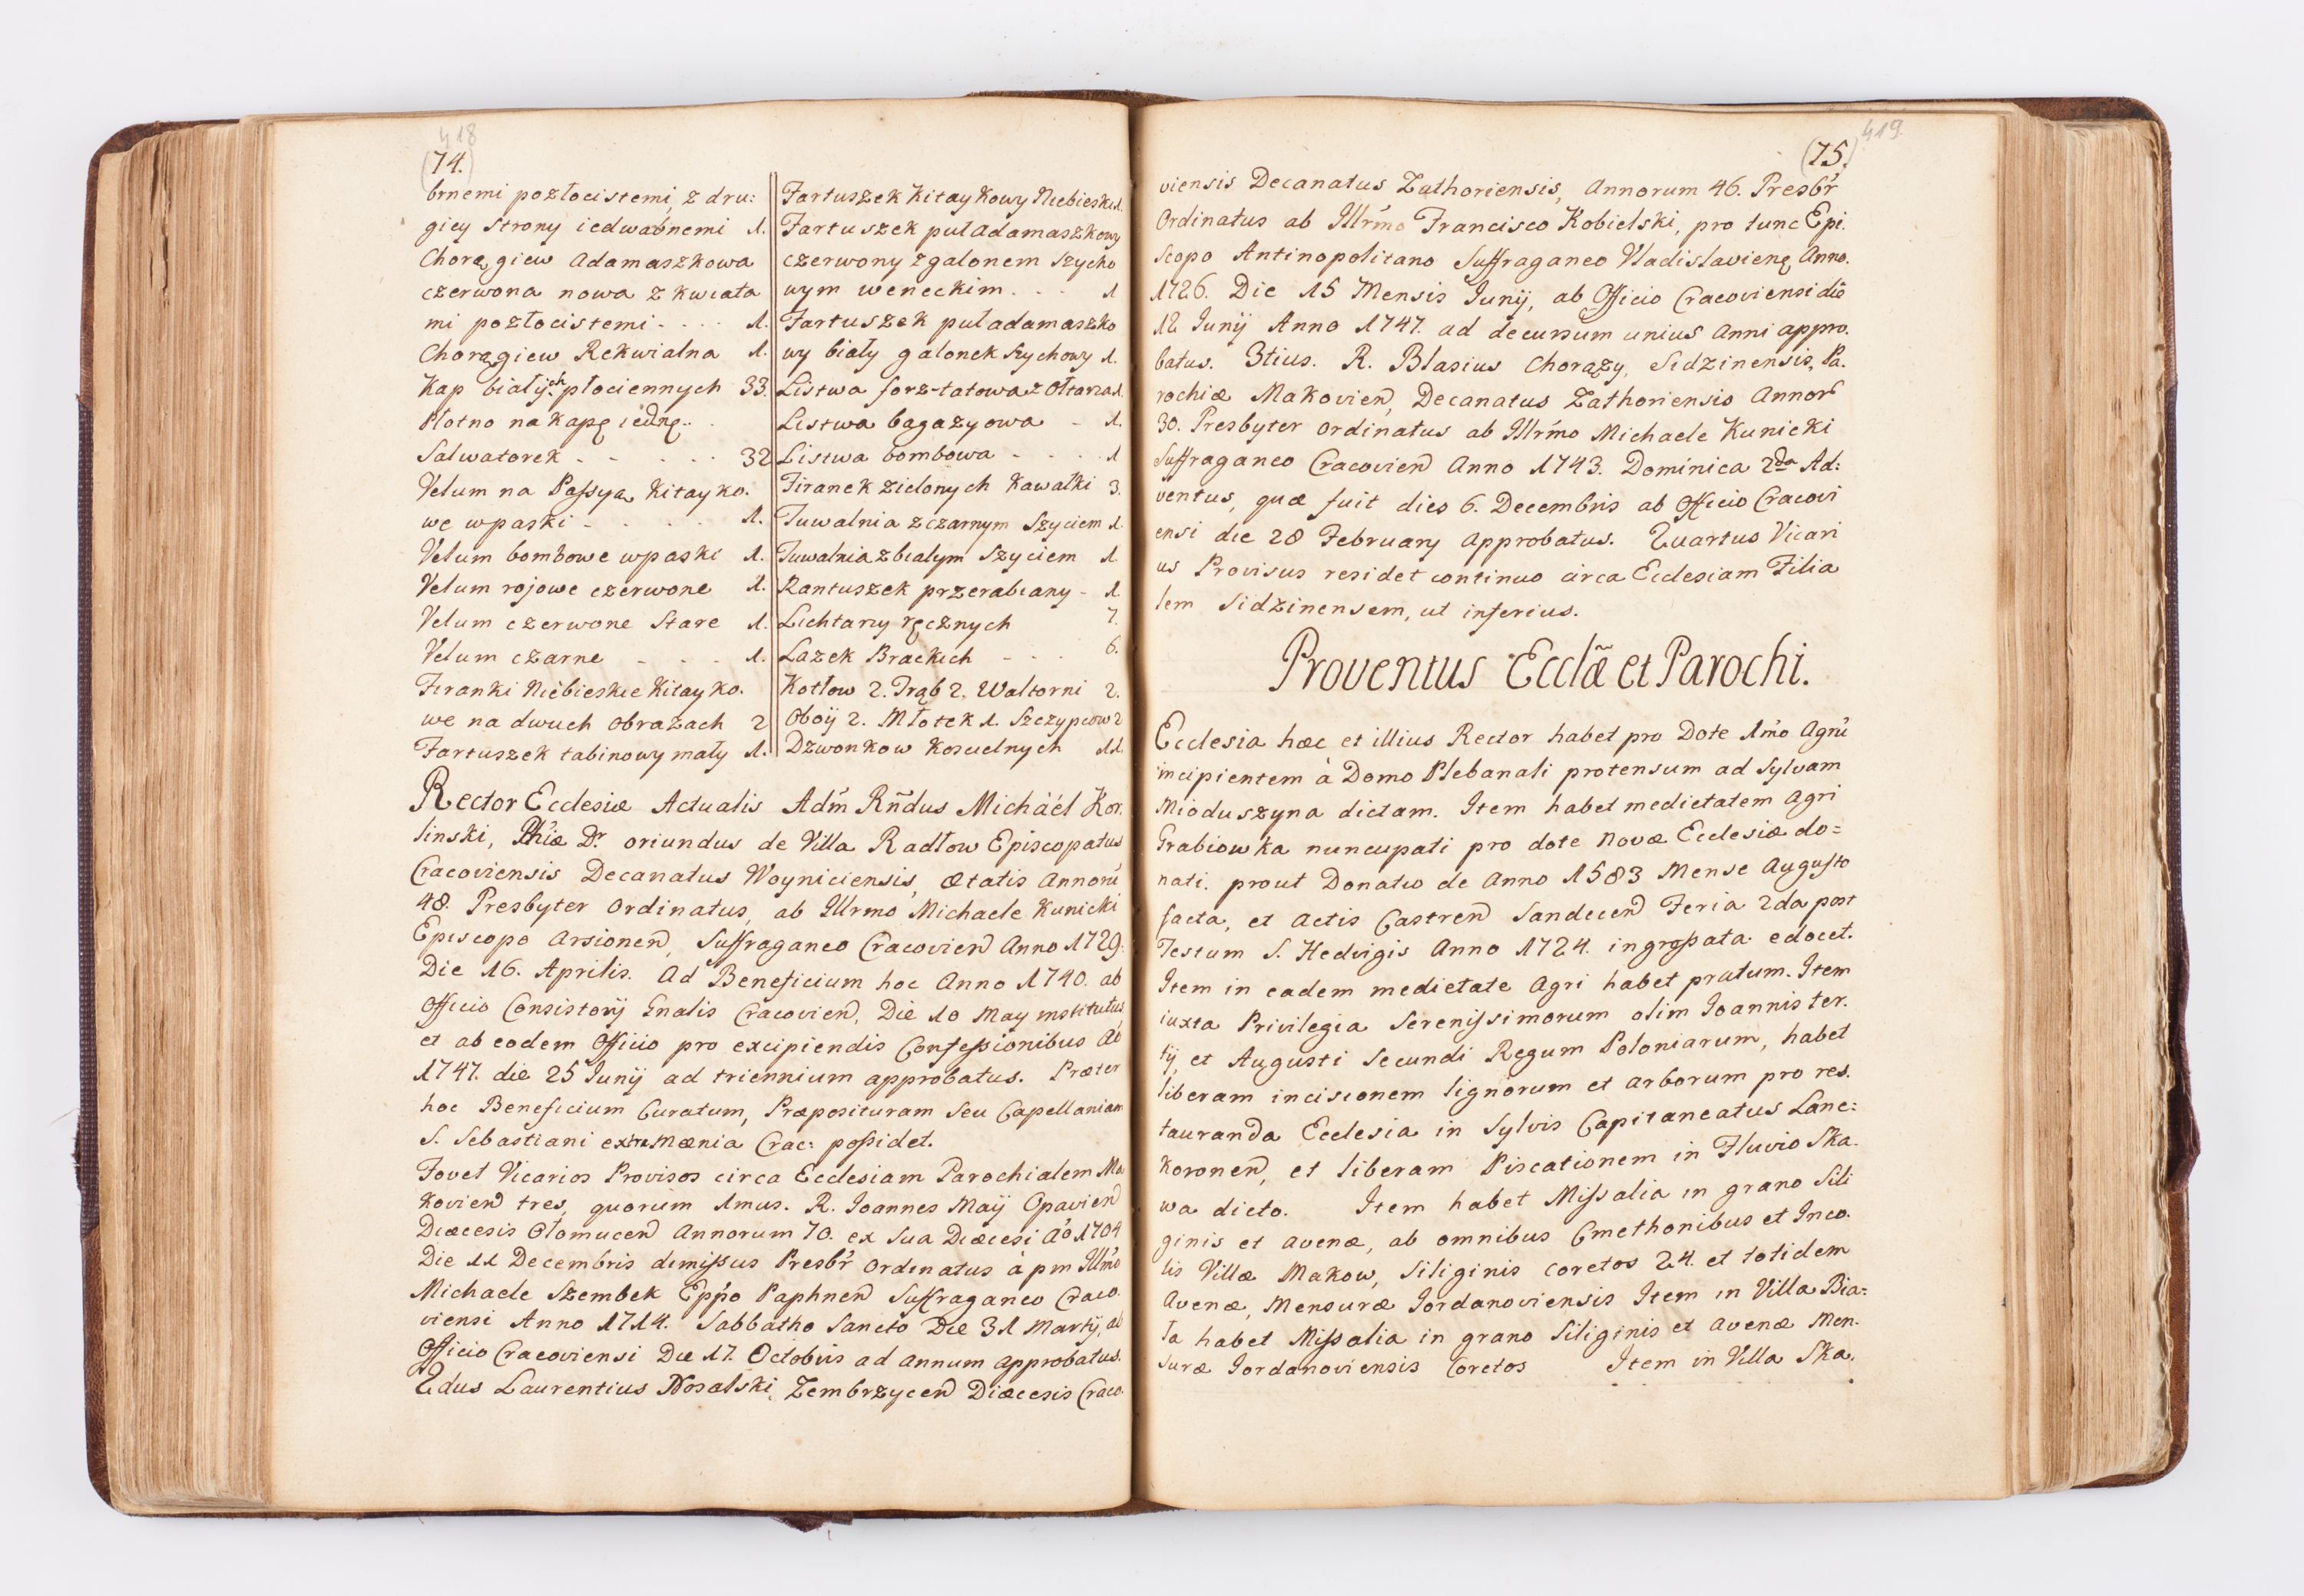 418
(74.)
brnemi pozłocistemi z dru:
giey Strony iedwabnemi 1.
Chorągiew Adamaszkowa
czerwona nowa z kwiata
mi pozłocistemi - . . . 1.
Chorągiew Rekwialna 1.
Kap białych płociennych 33.
Płotno na kapę iednę . .
Salwatorek - - - . . 32
Velum na Passyą Kitayko.
we wpaski - . . . 1.
Velum bombowe wpaski 1.
Velum rojowe czerwone 1.
Velum czerwone Stare 1.
Velum czarne - . . 1.
Firanki Niebieskie Kitayko.
we na dwuch obrazach 2
Fartuszek tabinowy mały 1.
Fartuszek Kitaykowy Niebieski 1.
Fartuszek puł adamaszkowy
czerwony z galonem Szycho
wym weneckim . . . 1
Fartuszek puł adamaszko
wy biały galonek Szychowy 1.
Listwa forz-tatowa z Ołtarza 1.
Listwa bagazyowa - 1.
Listwa bombowa - . . . 1
Firanek zielonych Kawałki 3.
Tuwalnia z czarnym Szyciem 1.
Tuwalnia z białym Szyciem 1
Rantuszek przerabiany - 1.
Lichtarzy ręcznych 7.
Lazek Brackich - . . 6.
Kotłow 2. Trąb 2. Waltorni 2.
Oboÿ 2. Młotek 1. Szczypcow 2
Dzwonkow Koscielnych 11.
Rector Ecclesiæ Actualis Adm̃ Rñdus Michàél Kor.
linski, Phiæ Dr. oriundus de Villa Radłow Episcopatus
Cracoviensis Decanatus Woyniciensis, ætatis Annorũ
48. Presbyter Ordinatus, ab Illrmo Michaele Kunicki
Episcopo Arsionen, Suffraganeo Cracovien Anno 1729.
Die 16. Aprilis. Ad Beneficium hoc Anno 1740. ab
Officio Consistorÿ Gnalis Cracovien, Die 10 May institutus
et ab eodem Officio pro excipiendis Confessionibus Ao
1747. die 25 Junÿ ad triennium approbatus. Præter
hoc Beneficium Curatum, Præposituram Seu Capellaniam
S. Sebastiani extra Mænia Crac: possidet.
Fovet Vicarios Provisos circa Ecclesiam Parochialem Ma
Kovien tres, quorum 1mus. R. Joannes Maÿ Opavien
Diæcesis Ołomucen Annorum 70. ex Sua Diæcesi Ao 1704
Die 11 Decembris dimissus Presbr Ordinatus à pm Illmo
Michaele Szembek Eppo Paphnen Suffraganeo Craco.
viensi Anno 1714. Sabbatho Sancto Die 31 Martÿ, ab
Officio Cracoviensi Die 17. Octobris ad Annum approbatus.
2dus Laurentius Nosalski, Zembrzycen Diæcesis Craco.
419.
(75.)
viensis Decanatus Zathoriensis, Annorum 46. Presbr
Ordinatus ab Illrmo Francisco Kobielski, pro tunc Epi.
Scopo Antinopolitano Suffraganeo Vladislavienę Anno.
1726. Die 15 Mensis Junÿ, ab Officio Cracoviensi die
12 Junÿ Anno 1747. ad decursum unius Anni appro.
batus. 3tius. R. Blasius Chorązy, Sidzinensis, Pa.
rochiæ Makovien, Decanatus Zathoriensis Annor
30. Presbyter Ordinatus ab Illrmo Michaele Kunicki
Suffraganeo Cracovien Anno 1743. Dominica 2da Ad:
ventus, quæ fuit dies 6. Decembris ab Officio Cracovi
ensi die 28 February approbatus. Quartus Vicari
us Provisus residet continuo circa Ecclesiam Filia
lem Sidzinensem, ut inferius.
Proventus Ecclæ̃ et Parochi.
Ecclesia hæc et illius Rector habet pro Dote 1mo Agrũ
incipientem à Domo Plebanali protensum ad Sylvam
Mioduszyna dictam. Item habet medietatem Agri
Grabiowka nuncupati pro dote Novæ Ecclesiæ do=
nati. prout Donatio de Anno 1583 Mense Augusto
facta, et Actis Castren Sandecen Feria 2da post
Festum S. Hedvigis Anno 1724. ingrossata edocet.
Item in eadem medietate Agri habet pratum. Item
iuxta Privilegia Serenissimorum olim Joannis ter.
tÿ, et Augusti Secundi Regum Poloniarum, habet
liberam incisionem lignorum et arborum pro res.
tauranda Ecclesia in Sylvis Capitaneatus Lanc:
Koronen, et liberam Piscationem in Fluvio Ska.
wa dicto. Item habet Missalia in grano Sili
ginis et Avenæ, ab omnibus Cmethonibus et Inco.
lis Villæ Makow, Siliginis coretos 24. et totidem
Avenæ, Mensuræ Jordanoviensis Item in Villa Bia=
ła habet Missalia in grano Siliginis et Avenæ Men.
suræ Jordanoviensis Coretos Item in Villa Ska.